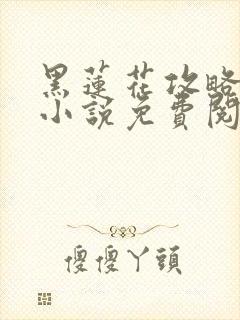 黑蓮花攻略
小說免費閱
傻傻丫頭